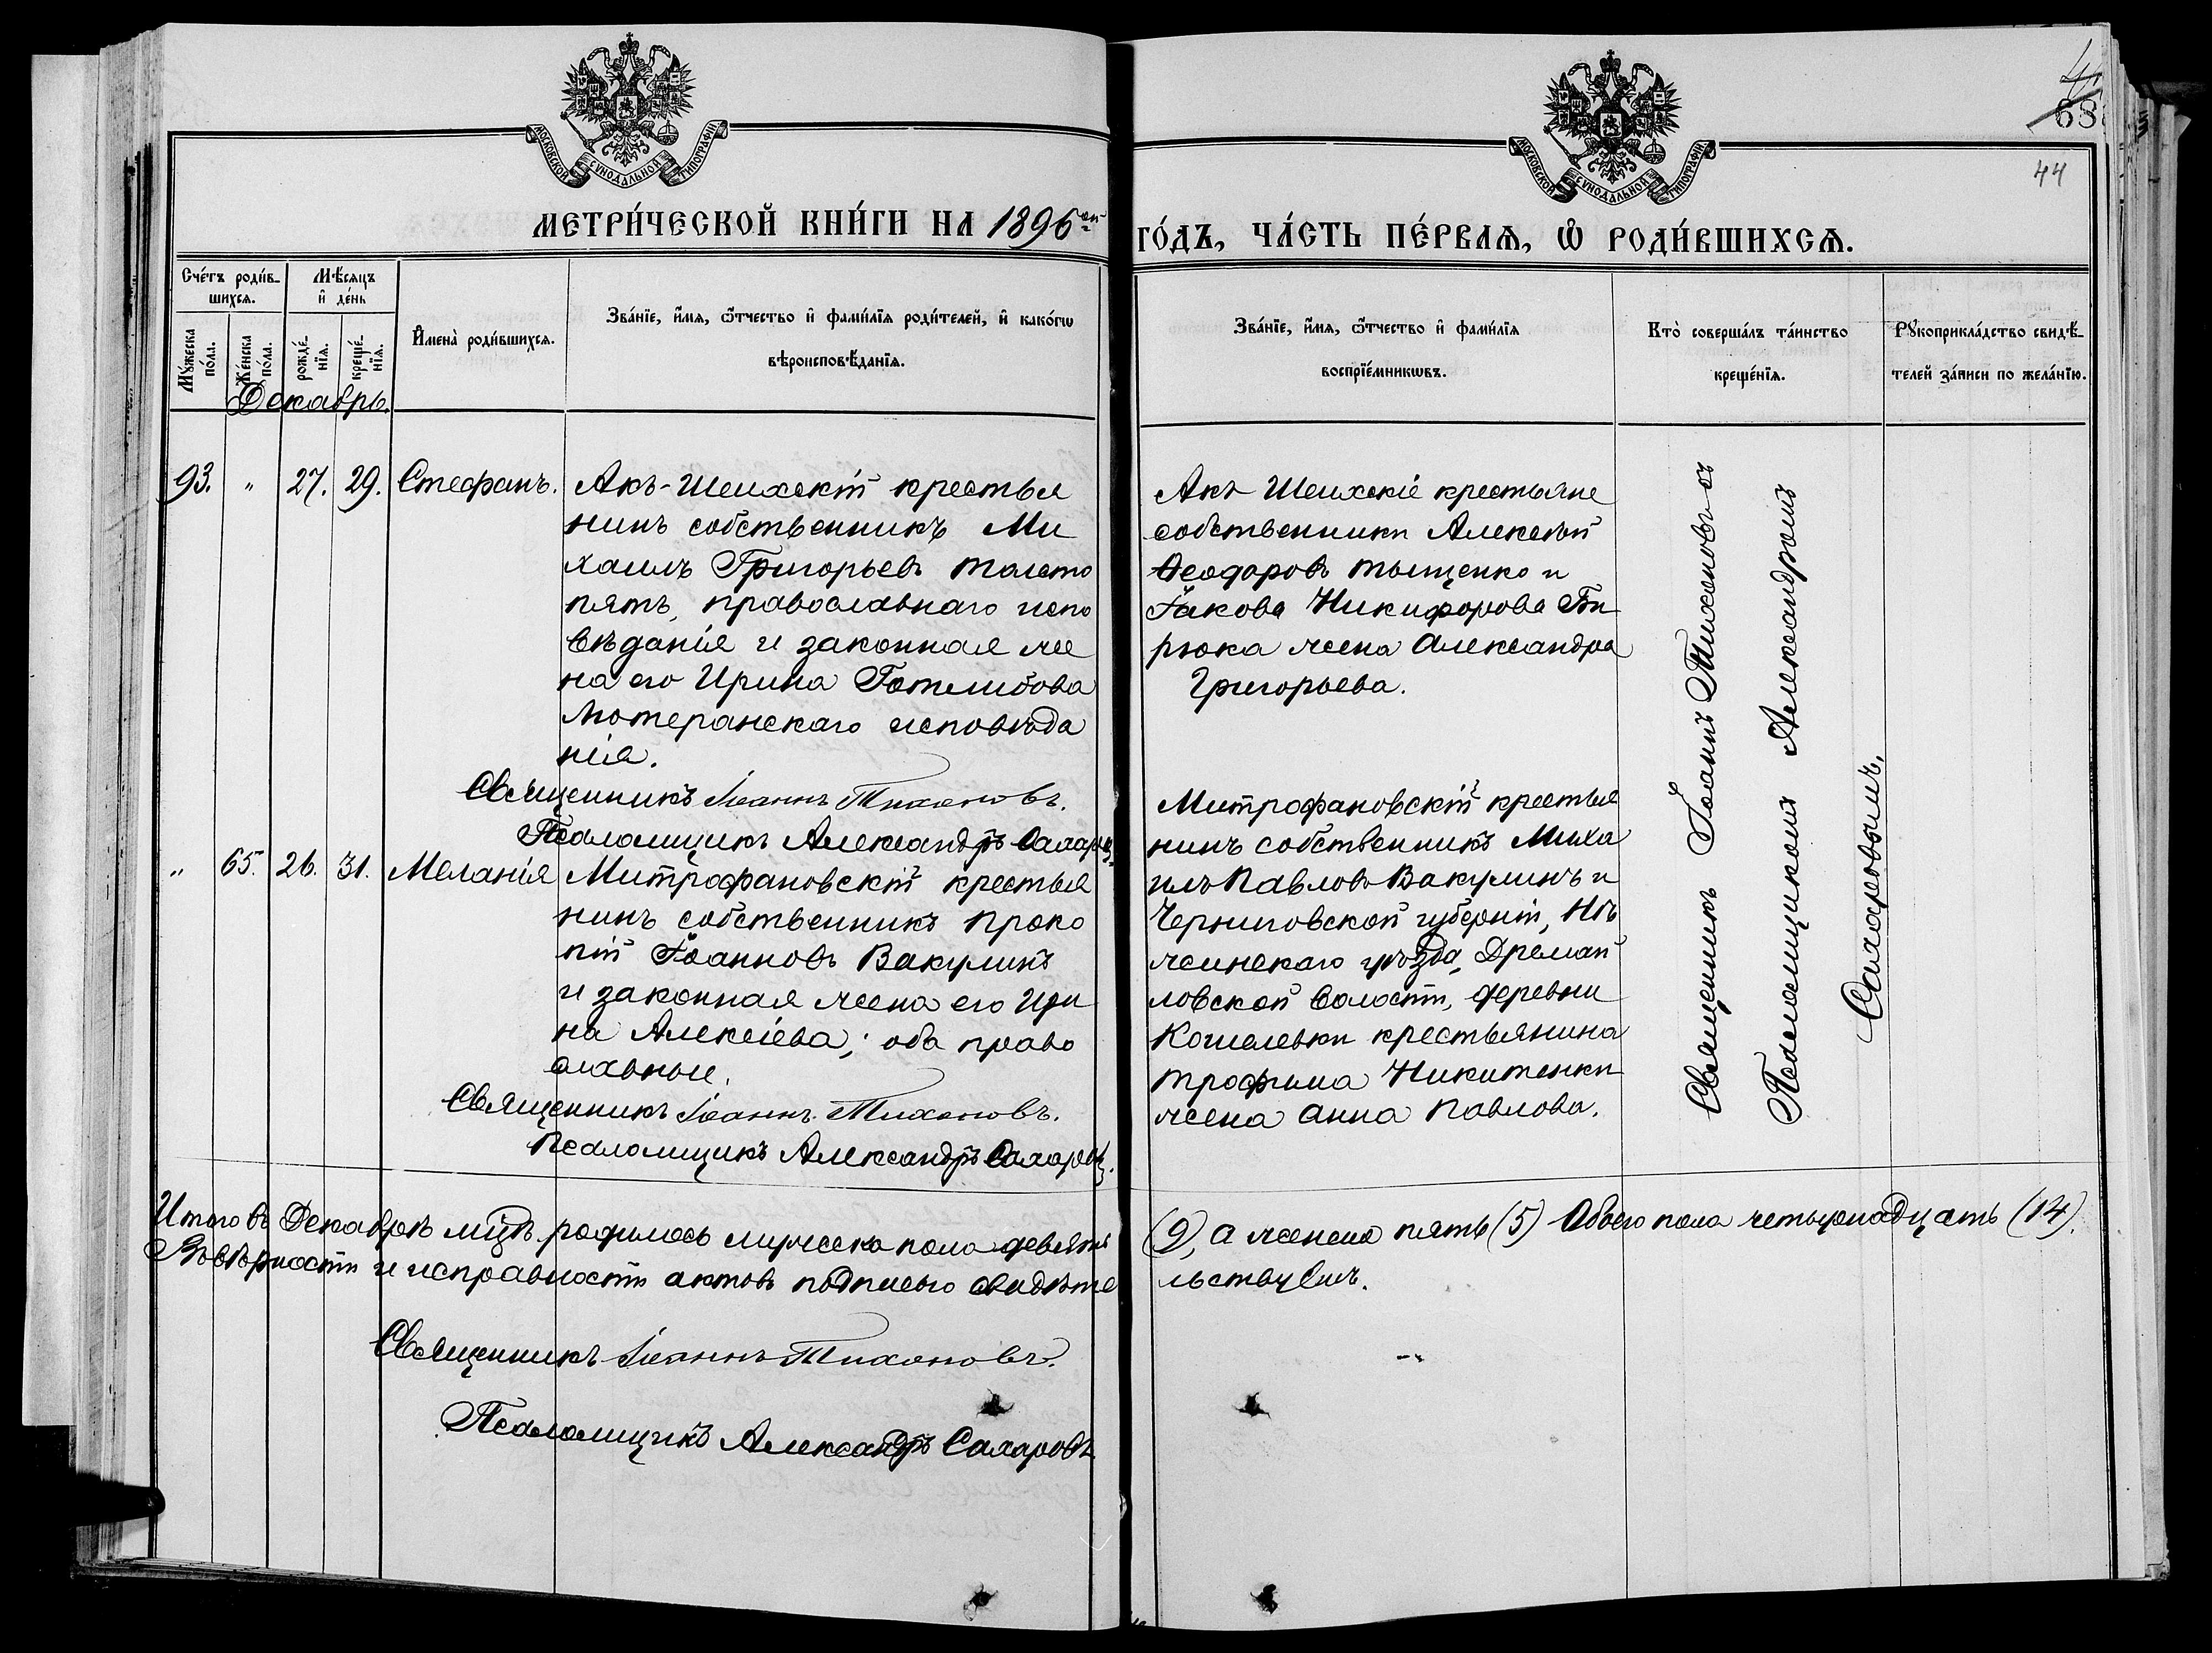 МОСКОВСКОЙ СУНОДАЛЬНОЙ ТИПОГРАФІИ
МОСКОВСКОЙ СУНОДАЛЬНОЙ ТИПОГРАФІИ
68
44
МЕТРИ́ЧЕСКОЙ КНИ́ГИ НА 1896ой
ГО́ДЪ, ЧА́СТЬ ПЕ́РВАѦ, Ѡ҆ РОДИ́ВШИХСѦ.
Сче́тъ роди́в-
шихсѧ.
Мѣ́сѧцъ
и҆ де́нь
Мꙋ́жеска
по́ла.
Же́нска
по́ла.
рожде́-
нїѧ.
креще́-
нїѧ.
И҆мена̀ роди́вшихсѧ.
Зва́нїе, и҆́мѧ, ѻ҆́тчество и҆ фами́лїѧ роди́телей, и҆ како́гѡ
вѣроисповѣ́данїѧ.
Зва́нїе, и҆́мѧ, ѻ҆́тчество и҆ фами́лїѧ
воспрїе́мникѡвъ.
Кто̀ соверша́лъ та́инство
креще́нїѧ.
Рꙋкоприкла́дство свидѣ́-
телей за́писи по жела́нїю.
Декабрь.
93. " 27. 29. Стефанъ.
Акъ-Шеихскій крестья
нинъ собственникъ Ми
хаилъ Григорьевъ Толсто
пятъ, православнаго испо
вѣданія и законная же
на его Ирина Готлибова
Лютеранскаго исповѣда
нія.
Священникъ Іоаннъ Тихоновъ.
Псаломщикъ Александръ Сахаровъ
Акъ-Шеихскіе крестьяне
собственники Алексѣй
Ѳеодоровъ Тыщенко и
Іакова Никифорова Би
рюка жена Александра
Григорьева.
" 65. 26. 31. Меланія
Митрофановскій крестья
нинъ собственникъ Проко
пій Іоанновъ Вакулинъ
и законная жена его Ири
на Алексіева; оба право
славные.
Священникъ Іоаннъ Тихоновъ.
Псаломщикъ Александръ Сахаровъ.
Митрофановскій крестья
нинъ собственникъ Миха
илъ Павловъ Вакулинъ и
Черниговской губерніи, Нѣ
жинскаго уѣзда, Дремай
ловской волости, деревни
Кошелевки крестьянина
Трофима Никитенки
жена Анна Павлова.
Священникъ Іоаннъ Тихоновъ съ
Псаломщикомъ Александромъ
Сахаровымъ.
Итого въ Декабрѣ мцѣ родилось мужеска пола девять
(9), а женска пять (5) Обоего пола четырнадцать (14).
Въ вѣрности и исправности актовъ подписью свидѣте
льствуемъ.
Священникъ Іоаннъ Тихоновъ.
Псаломщикъ Александръ Сахаровъ